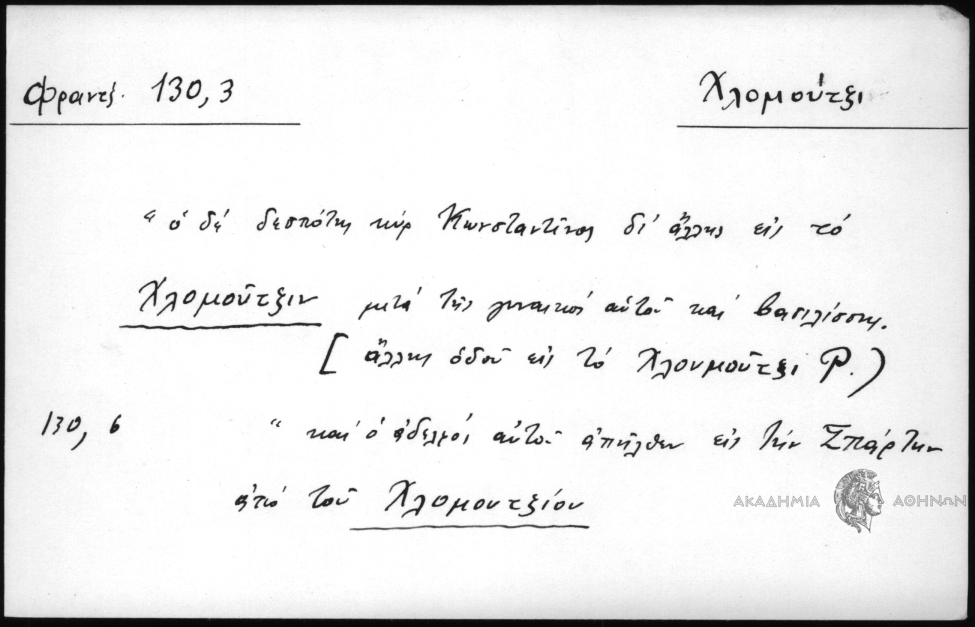 Φραντζ. 130,3
Χλομούτζι
"ὁ δέ δεσπότης κύρ Κωνσταντῖνος δι' ἄλλης εἰς τό
Χλομοῦτζιν μετά τῆς γυναικός αὐτοῦ καί βασιλίσσης.
[ἄλλης ὁδοῦ εἰς τό Χλουμοῦτζι P.)
130, 6 "καί ὁ ἀδελφός αὐτοῦ ἀπῆλθεν εἰς τήν Σπάρτην
ἀπό τοῦ Χλομουτζίου
ΑΚΑΔΗΜΙΑ ΑΘΗΝΩΝ